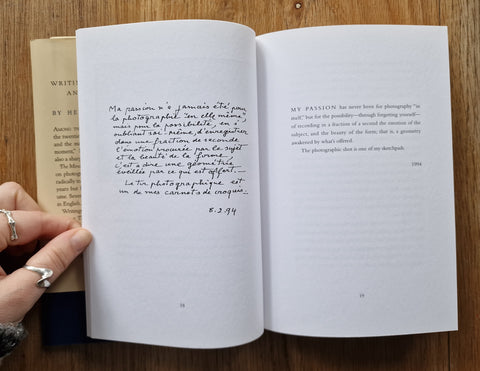 WRITIN
AN
BY HE
Ma passion n'a jamais été pour
la photographie "en elle même",
mais pour la possibilité, en s'
oubliant soi-même, d'enregistrer
dans une fraction de seconde
l'émotion procurée par le sujet
et la beauté de la forme,
c'est à dire une géométrie
éveillée par ce qui est offert.—
Le tir photographique est
un de mes carnets de croquis.—
8.2.94
18
MY PASSION has never been for photography "in
itself," but for the possibility—through forgetting yourself—
of recording in a fraction of a second the emotion of the
subject, and the beauty of the form; that is, a geometry
awakened by what's offered.
The photographic shot is one of my sketchpads.
1994
19